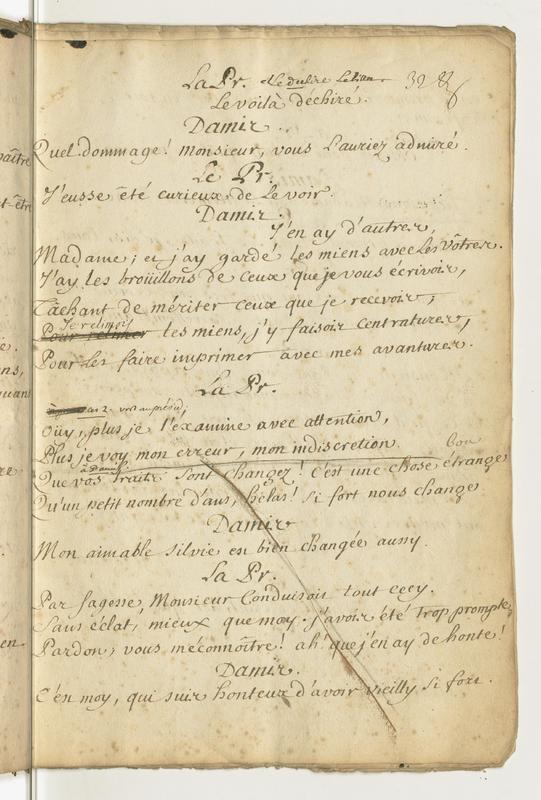 La Pr.
39
Le voilà déchiré.
Damis.
Quel dommage! Monsieur, vous l'auriez admiré.
Le Pr.
J'eusse été curieux de le voir.
Damis.
J'en ay d'autres,
Madame; et j'ay gardé les miens avec les vôtres.
J'ay les broüillons de ceux que je vous écrivois,
Tâchant de mériter ceux que je recevois;
Je relimois
Pour relimer les miens, j'y faisois cent ratures,
Pour les faire imprimer avec mes avantures.
La Pr.
Oüy, plus je l'examine avec attention,
Plus je voy mon erreur, mon indiscretion.
bon
à Damis
Que vos traits sont changez! C'est une chose étrange
Qu'un petit nombre d'ans, hélas! si fort nous change
Damis
Mon aimable Silvie est bien changée aussy.
La Pr.
Par sagesse, Monsieur Conduisoit tout cecy.
Sans éclat, mieux que moy. j'avois été trop prompte,
Pardon; vous méconnoître! ah! que j'en ay de honte!
Damis.
C'est moy, qui suis honteux d'avoir vieilly si fort.